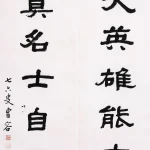 大英雄能
真名士自
七六叟曹容